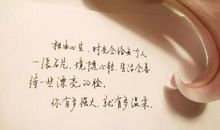 相由心生，时光会给每个人
一张名片，境随心转，生活会善
待一些漂亮的脸。
你有多强大，就有多温柔。